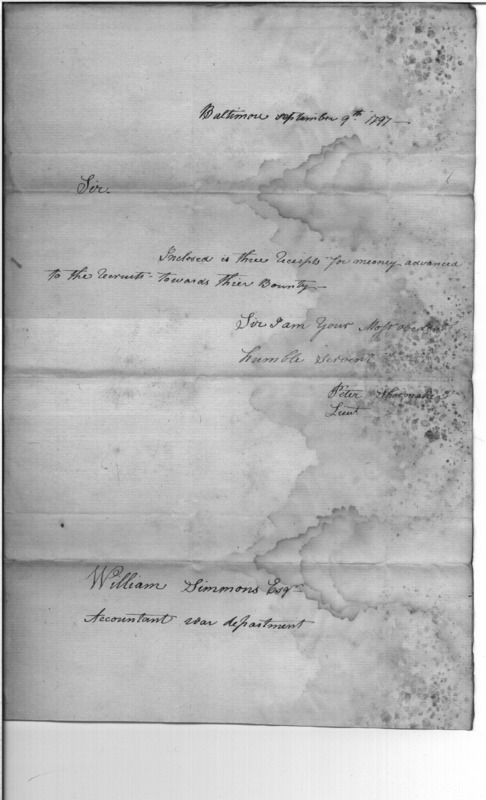 Baltimore september 9th 1797
Sir.
Inclosed is three Receipts for meoney advanced
to the Recruits towards thier Bounty
Sir I am Your Most obedient
humble Servent
Peter Shoemaker
Lieut
William Simmons Esqr
Accountant war department